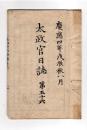 慶應四年戊辰秋八月
太政官日誌
第五十六